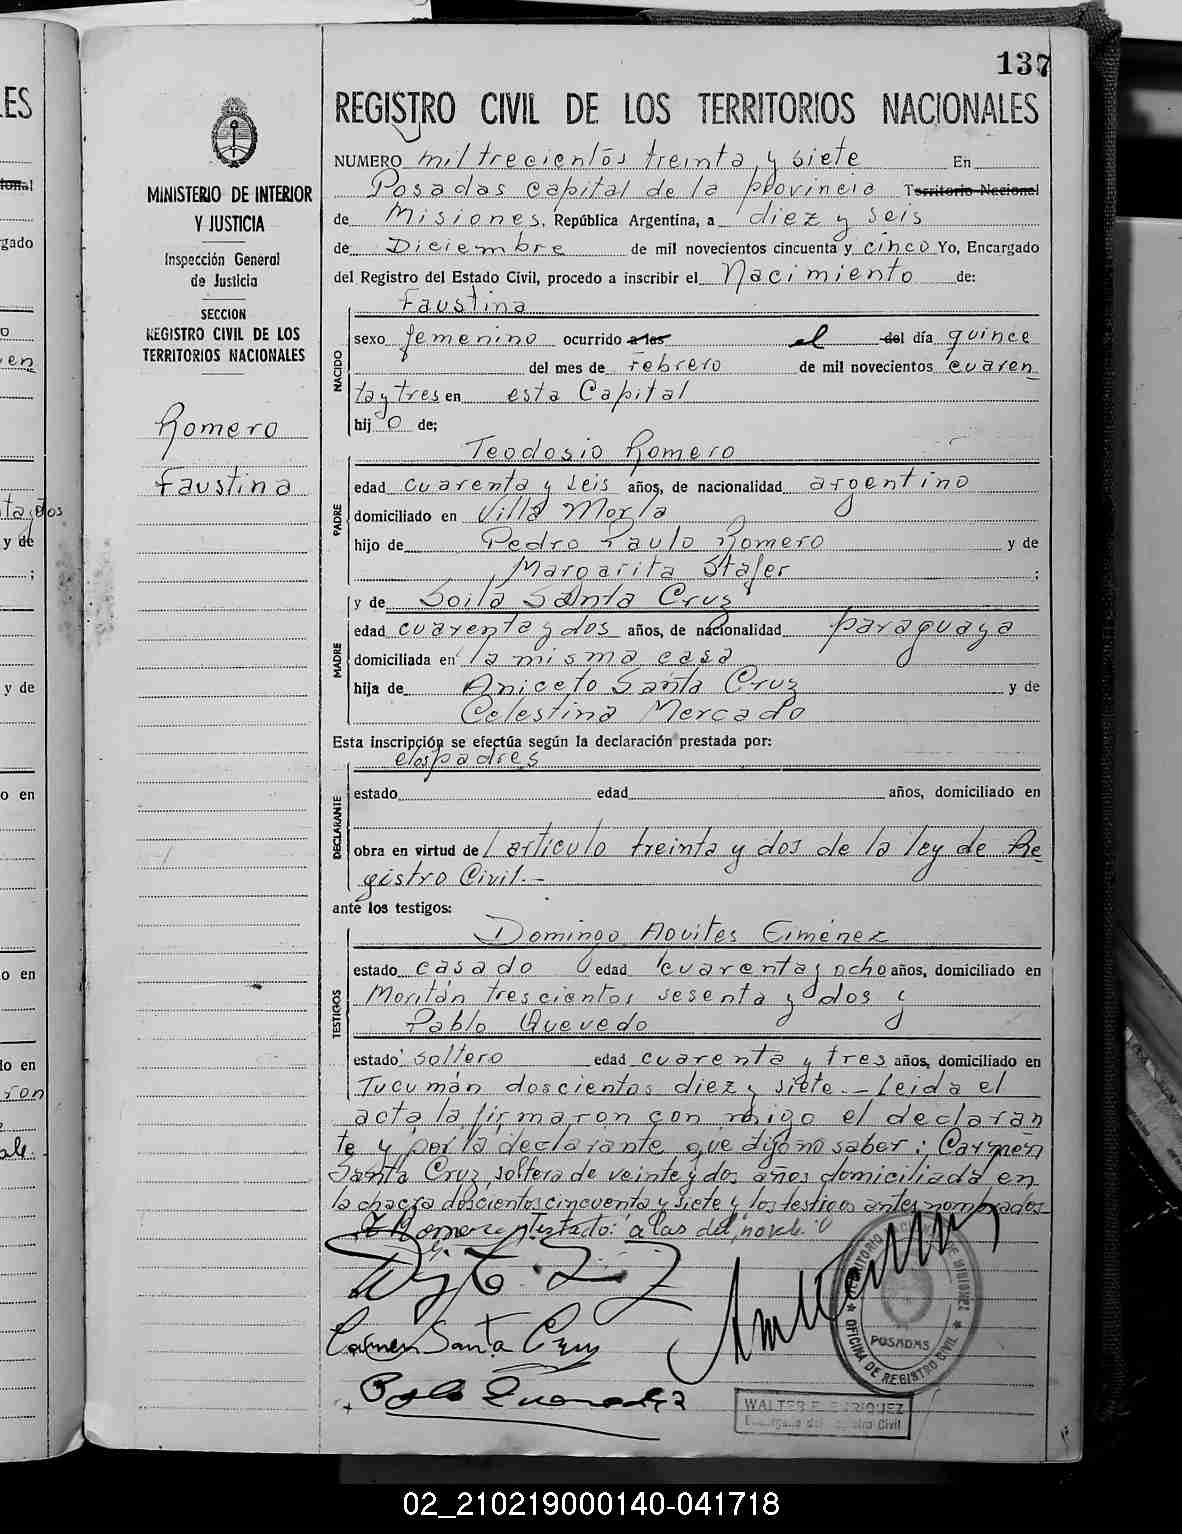 137
REGISTRO CIVIL DE LOS TERRITORIOS NACIONALES
MINISTERIO DE INTERIOR
Y JUSTICIA
Inspección General
de Justicia
SECCION
REGISTRO CIVIL DE LOS
TERRITORIOS NACIONALES
Romero
Faustina
NUMERO mil trecientos treinta y siete En
Posadas capital de la provincia Territorio Nacional
de Misiones, República Argentina, a diez y seis
de Diciembre de mil novecientos cincuenta y cinco Yo, Encargado
del Registro del Estado Civil, procedo a inscribir el Nacimiento de:
NACIDO
Faustina
sexo femenino ocurrido a las el del día quince
del mes de Febrero de mil novecientos cuaren
ta y tres en esta Capital
hij o de;
PADRE
Teodosio Romero
edad cuarenta y seis años, de nacionalidad argentino
domiciliado en Villa Morla
hijo de Pedro Paulo Romero y de
Margarita Stafer ;
y de Soila Santa Cruz
MADRE
edad cuarenta y dos años, de nacionalidad paraguaya
domiciliada en la misma casa
hija de Aniceto Santa Cruz y de
Celestina Mercado
Esta inscripción se efectúa según la declaración prestada por:
DECLARANTE
padres
estado edad años, domiciliado en
obra en virtud del artículo treinta y dos de la ley de Re
gistro Civil.-
ante los testigos:
TESTIGOS
Domingo Aquiles Giménez
estado casado edad cuarenta y ocho años, domiciliado en
trescientos sesenta y dos y
Pablo Quevedo
estado soltero edad cuarenta y tres años, domiciliado en
Tucumán doscientos diez y siete.- Leida el
acta la firmaron con migo el declaran
te y por la declarante que dijo no saber: Carmen
Santa Cruz, soltera de veinte y dos años domiciliada en
la chacra doscientos cincuenta y siete y los testigos antes nombrados
T Romero Testado: a las del
Carmen Santa Cruz
Pablo Quevedo
OFICINA DE REGISTRO CIVIL
POSADAS
WALTER E. ENRIQUEZ
Encargado del Registro Civil
02_210219000140-041718